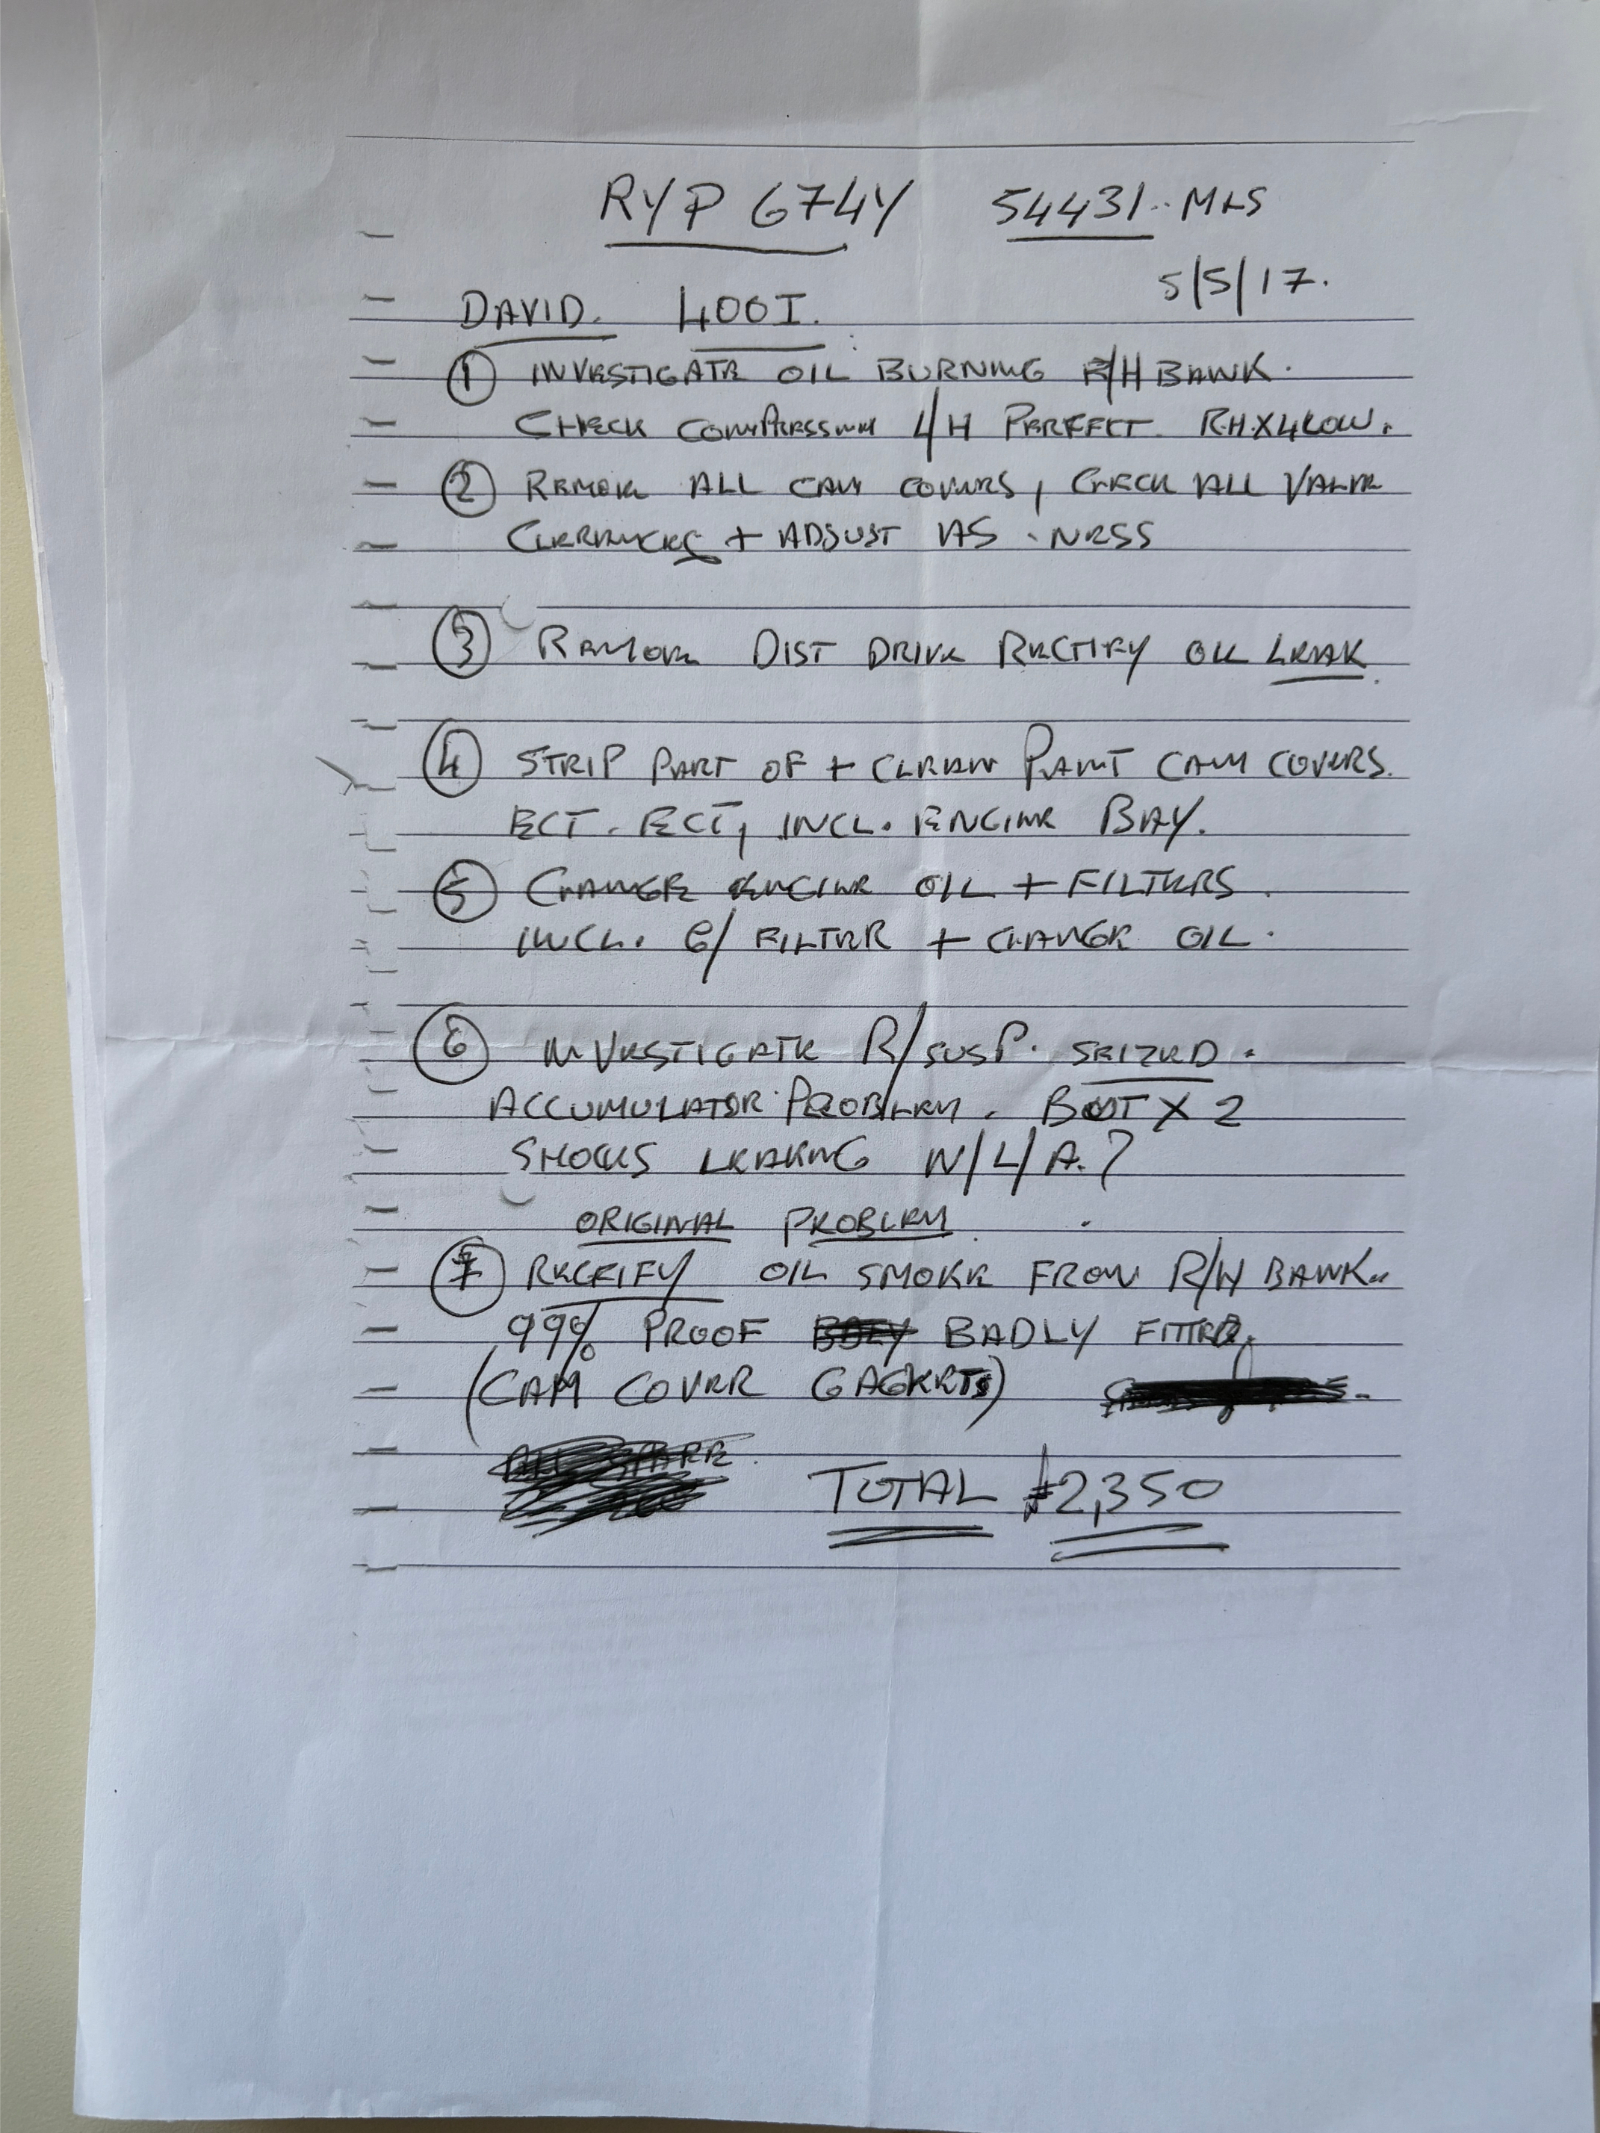 RYP 674Y 54431.. MLS
5/5/17.
DAVID. 400I.
① INVESTIGATE OIL BURNING R/H BANK.
CHECK COMPRESSION L/H PERFECT. R.H.X4 LOW.
② REMOVE ALL CAM COVERS, CHECK ALL VALVE
CLEARANCES + ADJUST AS . NESS
③ REMOVE DIST DRIVE RECTIFY OIL LEAK.
④ STRIP PART OF + CLEAN PAINT CAM COVERS.
ECT. ECT, INCL. ENGINE BAY.
⑤ CHANGE ENGINE OIL + FILTERS.
INCL. G/ FILTER + CHANGE OIL.
⑥ INVESTIGATE R/SUSP. SEIZED.
ACCUMULATOR PROBLEM. BOOT X 2
SHOCKS LEAKING N/L/A.?
ORIGINAL PROBLEM.
⑦ RECTIFY OIL SMOKE FROM R/H BANK..
99% PROOF BADLY FITTED.
(CAM COVER GASKETS)
TOTAL £2,350